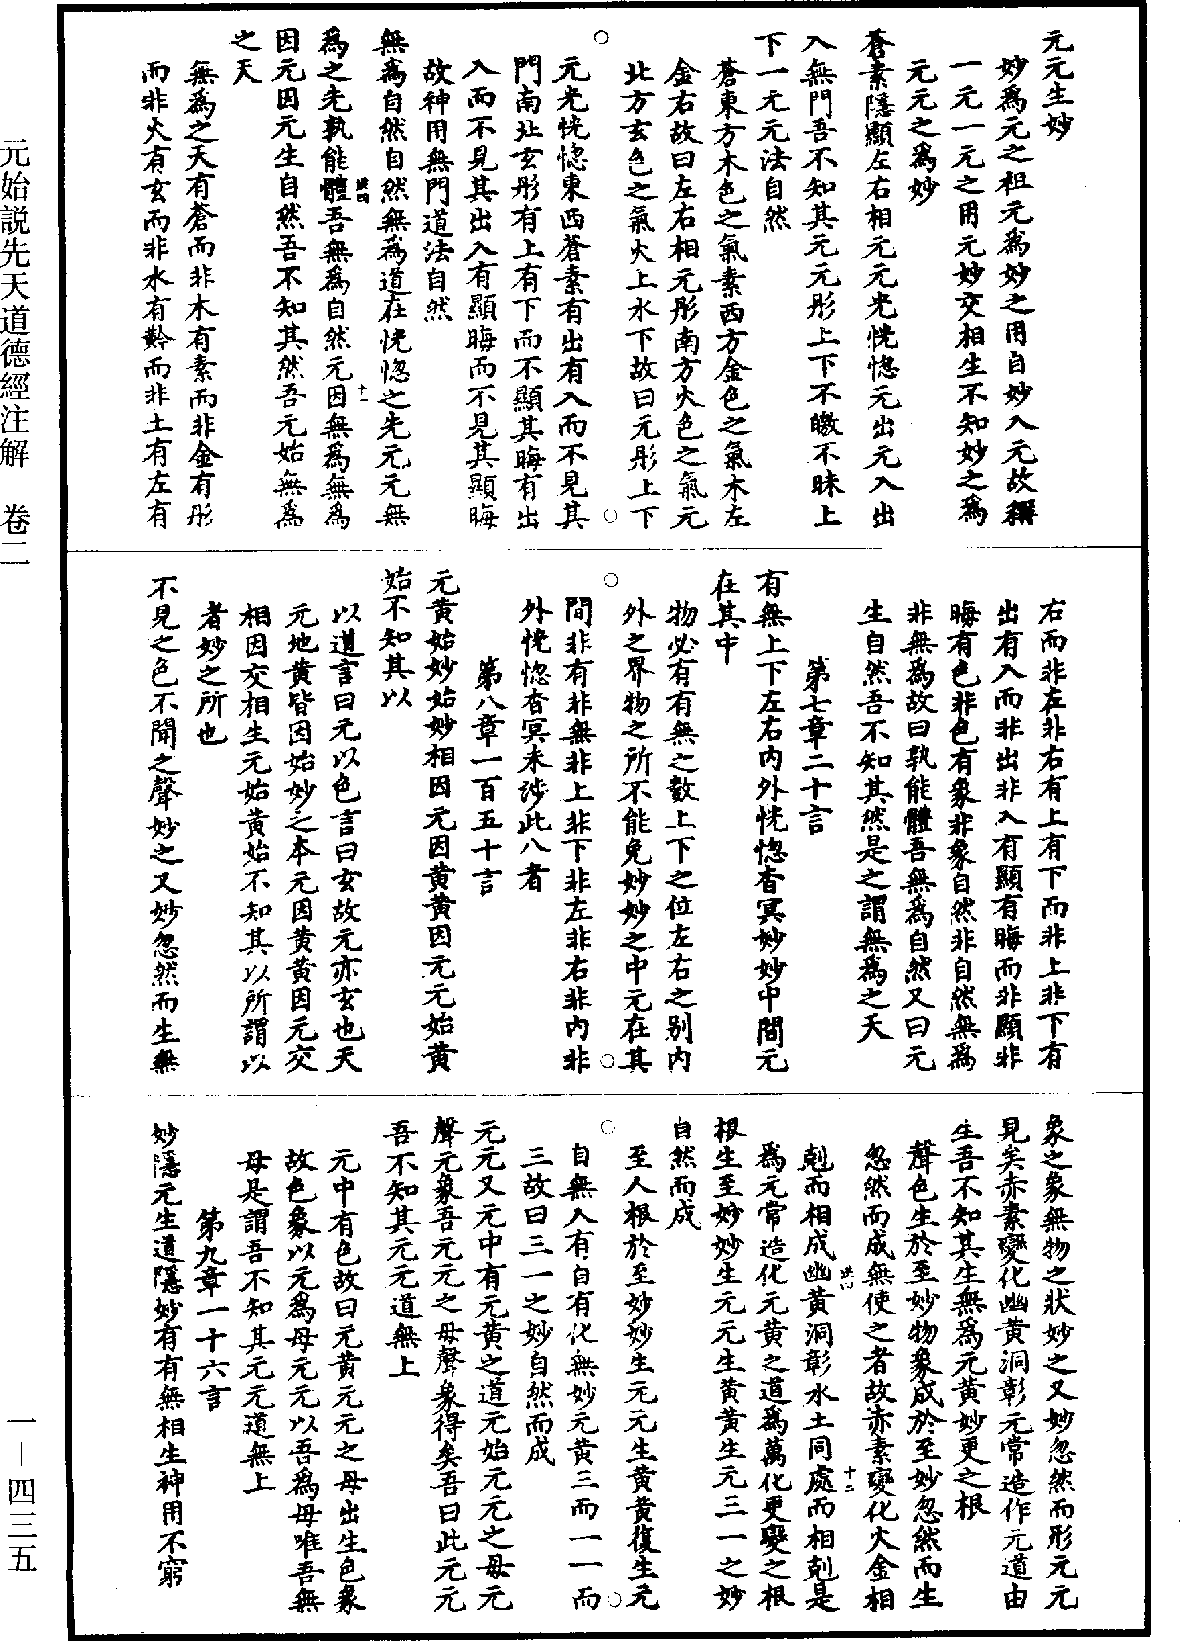 元元生妙
妙爲元之祖元爲妙之用自妙入元故釋
一元一元之用元妙交相生不知妙之爲
元元之爲妙
蒼素隱顯左右相元元光恍惚元出元入出
入無門吾不知其元元彤上下不皦不昧上
下一元元法自然
蒼東方木色之氣素西方金色之氣木左
金右故曰左右相元彤南方火色之氣元
北方玄色之氣火上水下故曰元彤上下
元光恍惚東西蒼素有出有入而不見其
門南北玄彤有上有下而不顯其晦有出
入而不見其出入有顯晦而不見其顯晦
故神用無門道法自然
無爲自然自然無爲道在恍惚之先元元無
爲之先孰能體吾無爲自然元因無爲無爲
因元因元生自然吾不知其然吾元始無爲
之天
無爲之天有蒼而非木有素而非金有彤
而非火有玄而非水有黅而非土有左有
右而非左非右有上有下而非上非下有
出有入而非出非入有顯有晦而非顯非
晦有色非色有象非象自然非自然無爲
非無爲故曰孰能體吾無爲自然又曰元
生自然吾不知其然是之謂無爲之天
第七章二十言
有無上下左右内外恍惚杳冥妙妙中間元
在其中
物必有有無之數上下之位左右之别内
外之界物之所不能免妙妙之中元在其
間非有非無非上非下非左非右非内非
外恍惚杳冥未涉此八者
第八章一百五十言
元黄始妙始妙相因元因黄黄因元元始黄
始不知其以
以道言曰元以色言曰玄故元亦玄也天
元地黄皆因始妙之本元因黄黄因元交
相因交相生元始黄始不知其以所謂以
者妙之所也
不見之色不聞之聲妙之又妙忽然而生無
象之象無物之狀妙之又妙忽然而形元元
見矣赤素變化幽黄洞彰元常造作元道由
生吾不知其生無爲元黄妙更之根
聲色生於至妙物象成於至妙忽然而生
忽然而成無使之者故赤素變化火金相
剋而相成幽黄洞彰水土同處而相剋是
爲元常造化元黄之道爲萬化更變之根
根生至妙妙生元元生黄黄生元三一之妙
自然而成
至人根於至妙妙生元元生黄黄復生元
自無入有自有化無妙元黄三而一一而
三故曰三一之妙自然而成
元元又元中有元黄之道元始元元之母元
聲元象吾元元之母聲象得矣吾曰此元元
吾不知其元元道無上
元中有色故曰元黄元元之母出生色象
故色象以元爲母元元以吾爲母唯吾無
母是謂吾不知其元元道無上
第九章一十六言
妙隱元生道隱妙有有無相生神用不窮
元始説先天道德經注解　卷二
一—四三五